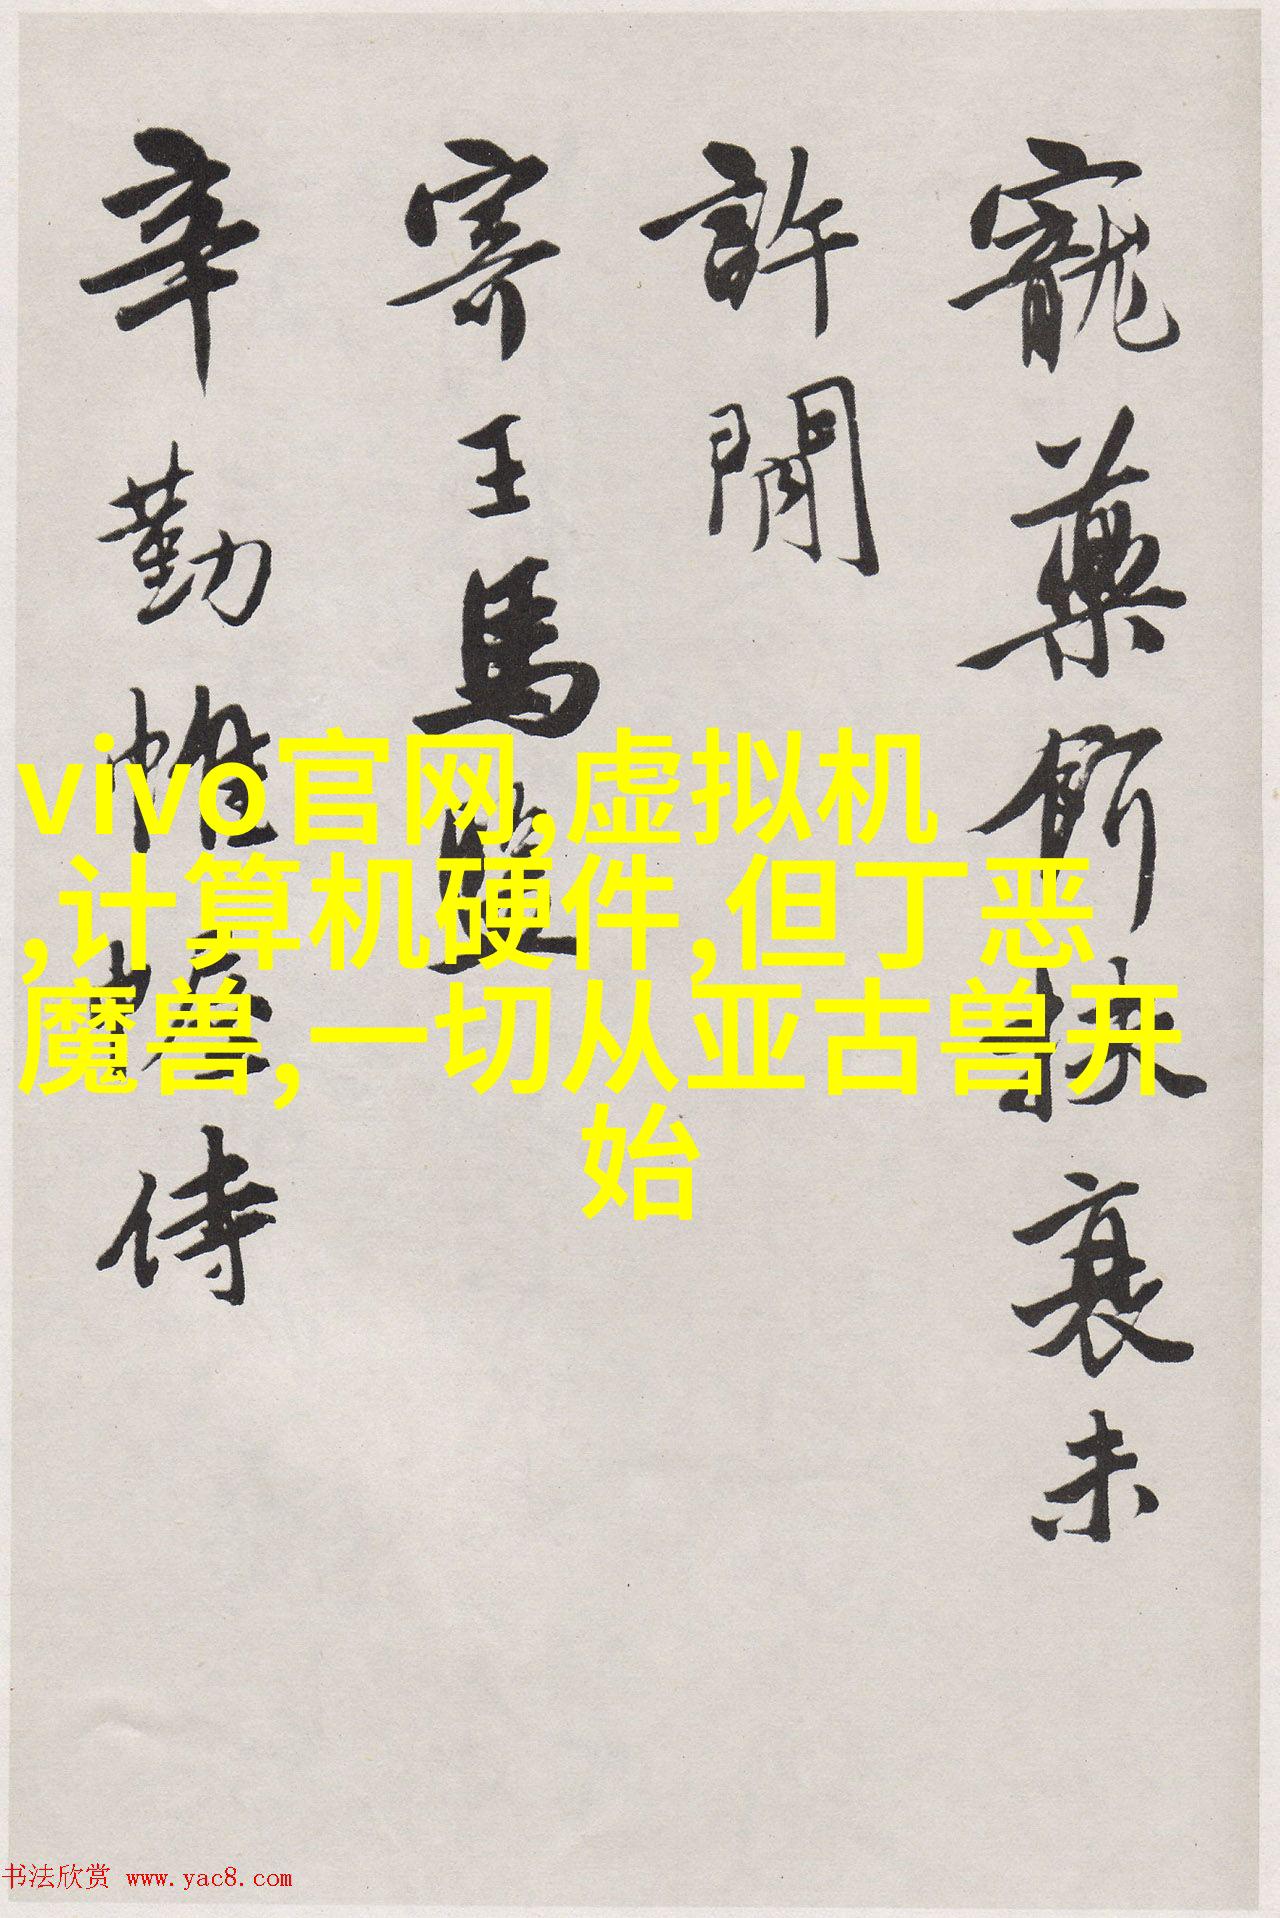 寵藥扶衰未
許閒
寄王馬
辛勤帷幄侍
vivo官网,虚拟机
,计算机硬件,但丁恶
魔兽,一切从亚古兽开
始
书法欣赏 www.yac8.com